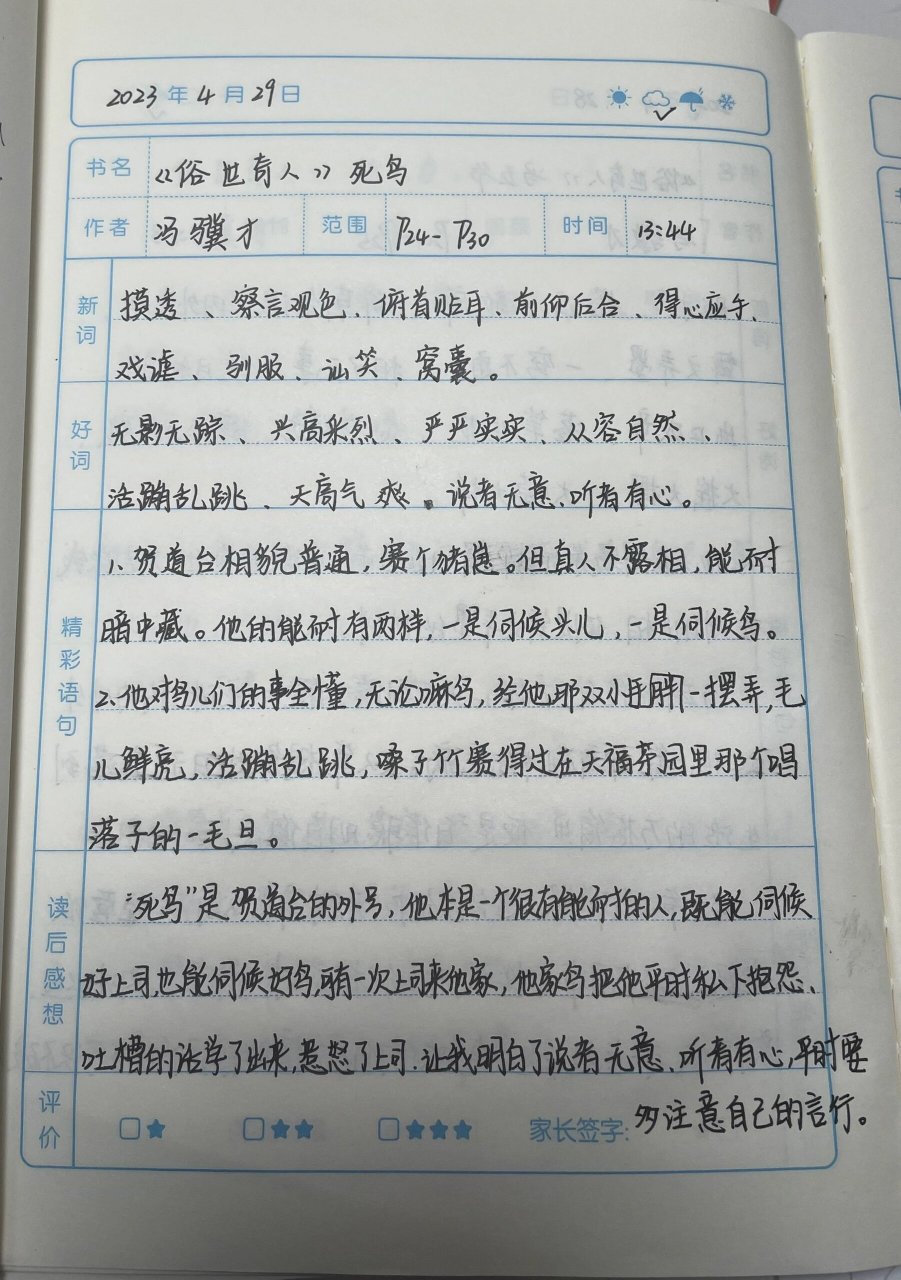 2023年4月29日
书名 《俗世奇人》死鸟
作者 冯骥才 范围 P24-P30 时间 13:44
新词 摸透、察言观色、俯首贴耳、前仰后合、得心应手、
戏谑、驯服、讪笑、窝囊。
好词 无影无踪、兴高采烈、严严实实、从容自然、
活蹦乱跳、天高气爽。说者无意、听者有心。
精彩语句 1、贺道台相貌普通，赛个猪崽。但真人不露相，能耐
暗中藏。他的能耐有两样，一是伺候头儿，一是伺候鸟。
2、他对鸟儿们的事全懂，无论嘛鸟，经他那双小胖手一摆弄，毛
儿鲜亮，活蹦乱跳，嗓子个个赛得过在天福茶园里那个唱
落子的一毛旦。
读后感想 “死鸟”是贺道台的外号，他本是一个很有能耐的人，既能伺候
好上司，也能伺候好鸟，有一次上司来他家，他家鸟把他平时私下抱怨、
吐槽的话学了出来，惹怒了上司.让我明白了说者无意、听者有心，平时要
多注意自己的言行。
评价 家长签字: